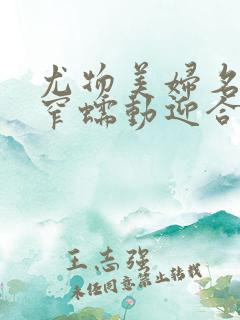 尤物美婦名
窄蠕動迎合
王志强
未经同意禁止转载